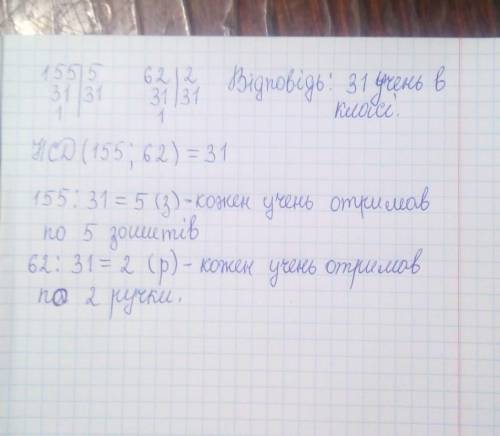 155|5 62|2 Відповідь: 31 учень в
31|31 31|31 класі.
1| 1|
НСД (155; 62) = 31
155 : 31 = 5 (з) - кожен учень отримав
по 5 зошитів
62 : 31 = 2 (р) - кожен учень отримав
по 2 ручки.